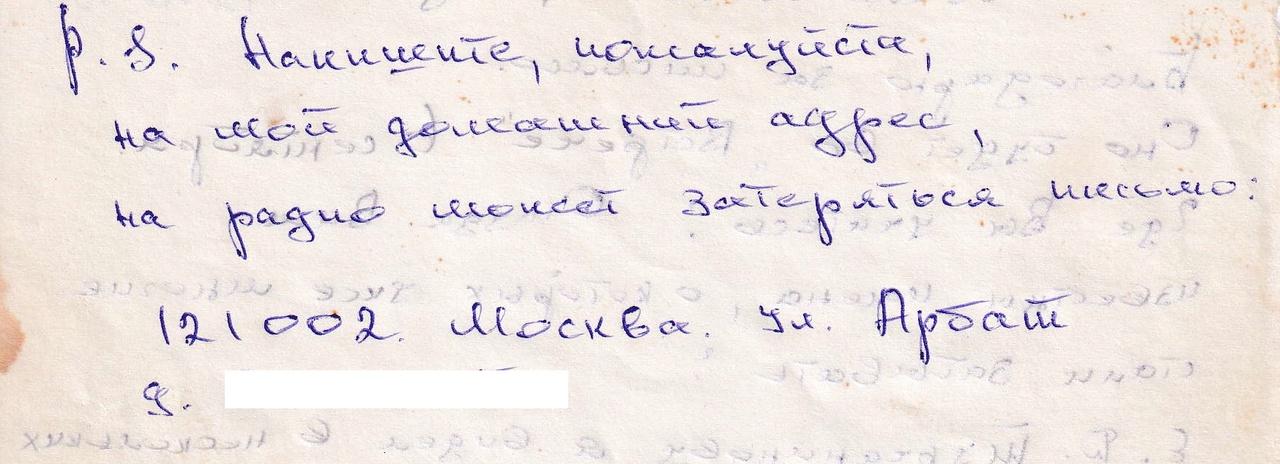 P.S. Напишите, пожалуйста,
на мой домашний адрес,
на радио может затеряться письмо:
121002. Москва. ул. Арбат
д.